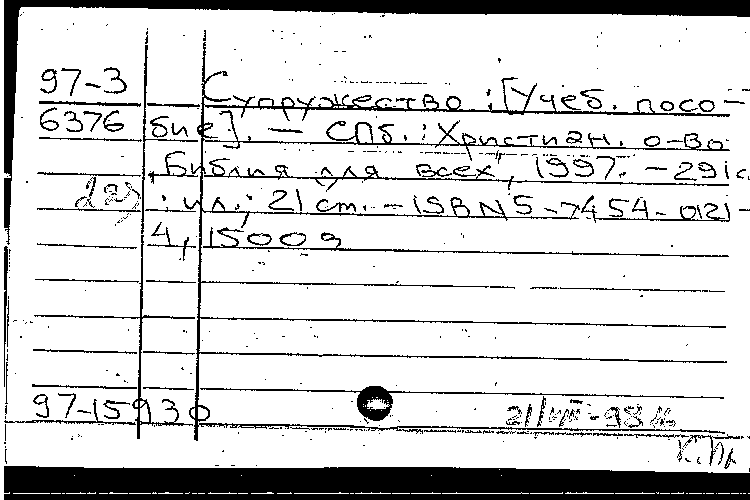 97-3 Супружество : [Учеб. посо-
6376 бие]. — СПб. : Христиан. о-во
„Библия для всех", 1997. - 291 с.
2аэ : ил.; 21 см. - ISBN 5-7454-0121-
4, 15000э
97-15930
21/VIII-98
К.